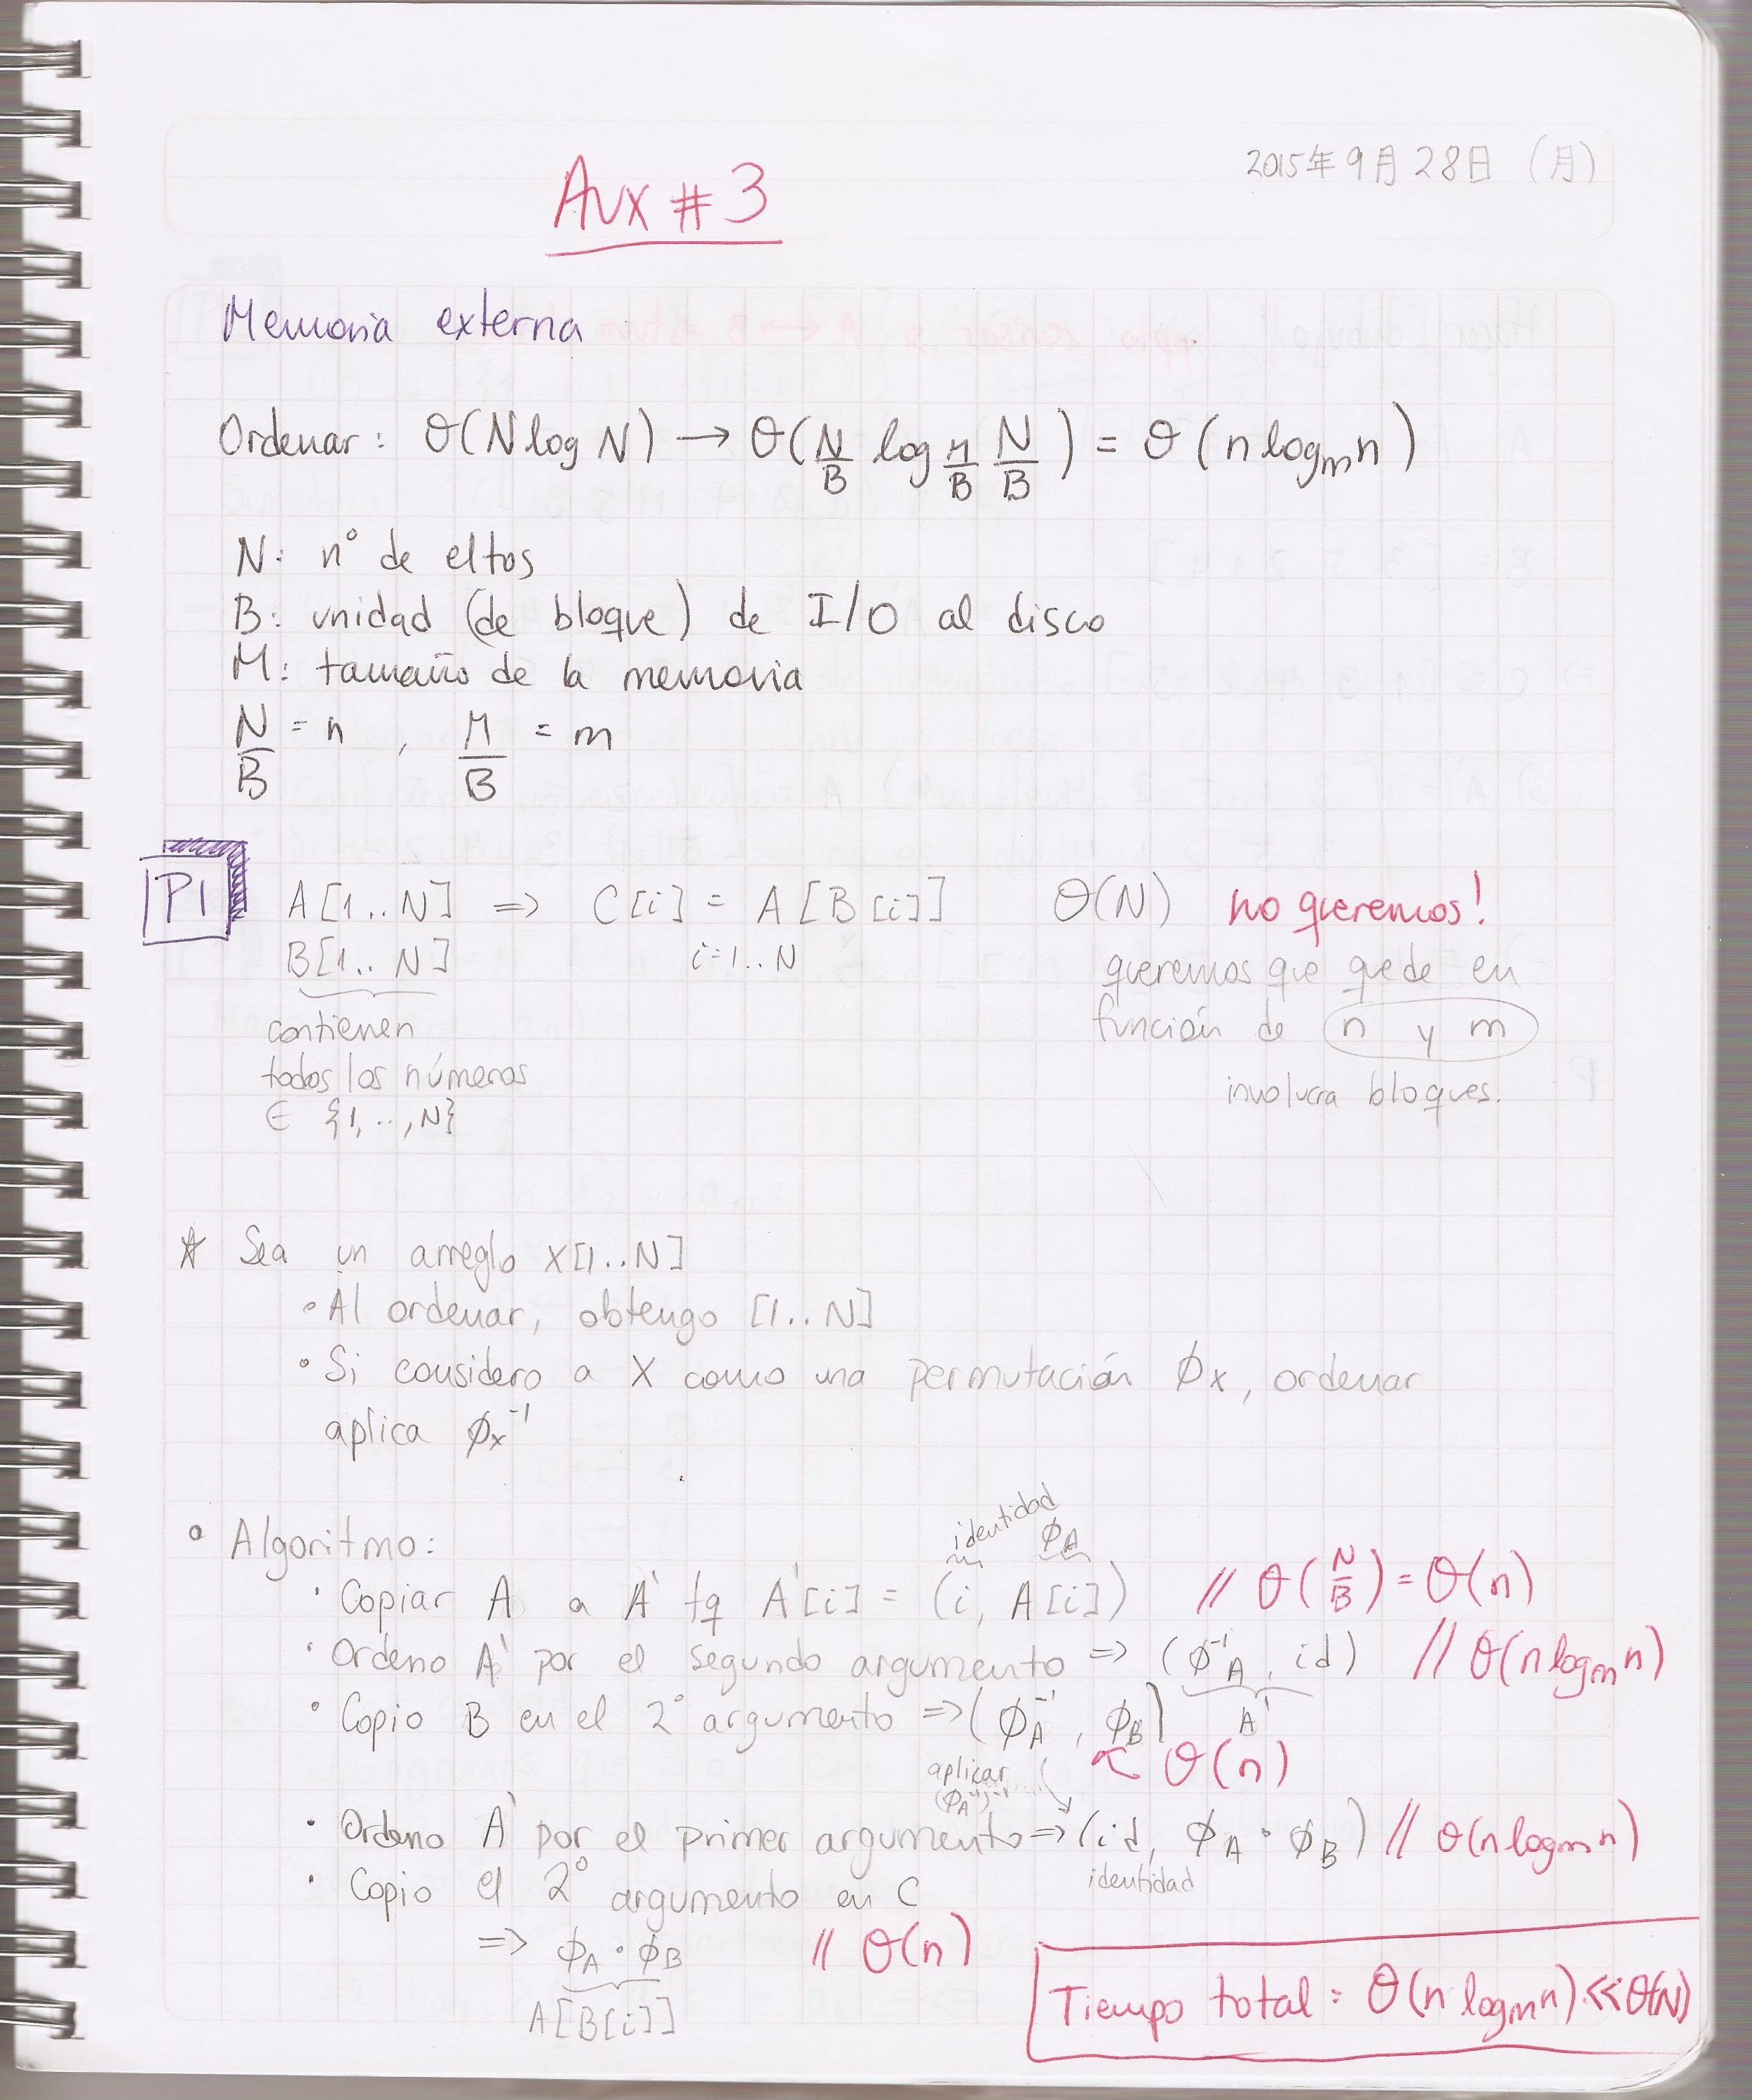 2015年9月28日 (月)
Aux #3
Memoria externa
Ordenar: θ(N log N) → θ(N/B log M/B N/B) = θ(n logm n)
N: n° de eltos
B: unidad (de bloque) de I/O al disco
M: tamaño de la memoria
N/B = n , M/B = m
P1 A[1..N] => C[i] = A[B[i]] θ(N) no queremos!
B[1..N] i=1..N queremos que qede en
contienen función de n y m
todos los números involucra bloques.
∈ {1,..,N}
☆ Sea un arreglo X[1..N]
• Al ordenar, obtengo [1..N]
• Si considero a X como una permutación ϕx, ordenar
aplica ϕx⁻¹
identidad ϕA
• Algoritmo:
• Copiar A a A' tq A'[i] = (i, A[i]) // θ(N/B) = θ(n)
• Ordeno A' por el segundo argumento => (ϕA⁻¹, id) // θ(n logm n)
• Copio B en el 2° argumento => (ϕA⁻¹, ϕB) A'
θ(n)
aplicar (ϕA⁻¹)⁻¹
• Ordeno A' por el primer argumento => (id, ϕA ∘ ϕB) // θ(n logm n)
identidad
• Copio el 2° argumento en C
=> ϕA ∘ ϕB // θ(n)
A[B[i]]
Tiempo total: θ(n logm n) << θ(N)